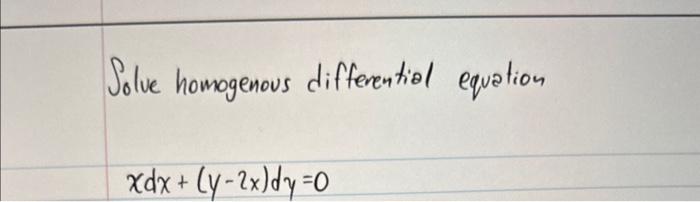 Solve homogenous differential equation
xdx + (y-2x)dy=0